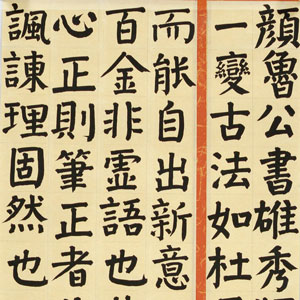 顔魯公書雄秀
一變古法如杜
而能自出新意
百金非虛語也
心正則筆正者
諷諫理固然也